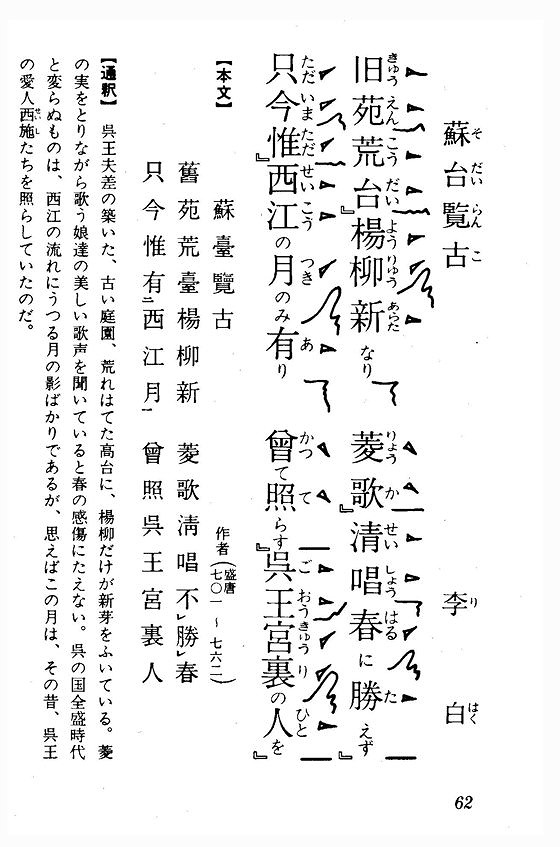 蘇台覧古
李白
旧苑荒台楊柳新なり
菱歌清唱春に勝えず
只今惟西江の月のみ有り
曾て照らす呉王宮裏の人を
【本文】
蘇臺覽古
作者(盛唐 七〇一〜七六二)
舊苑荒臺楊柳新 菱歌淸唱不レ勝レ春
只今惟有二西江月一 曾照呉王宮裏人
【通釈】 呉王夫差の築いた、古い庭園、荒れはてた高台に、楊柳だけが新芽をふいている。菱
の実をとりながら歌う娘達の美しい歌声を聞いていると春の感傷にたえない。呉の国全盛時代
と変らぬものは、西江の流れにうつる月の影ばかりであるが、思えばこの月は、その昔、呉王
の愛人西施たちを照らしていたのだ。
62